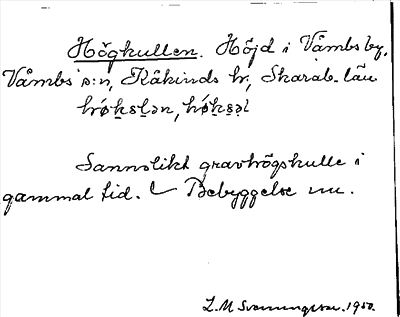 Högkullen. Höjd i Våmbs by,
Våmbs s:n, Kåkinds hr, Skarab. län
Sannolikt gravhögskulle i
gammal tid. Bebyggelse nu.
L. M. Svenungsson. 1950.